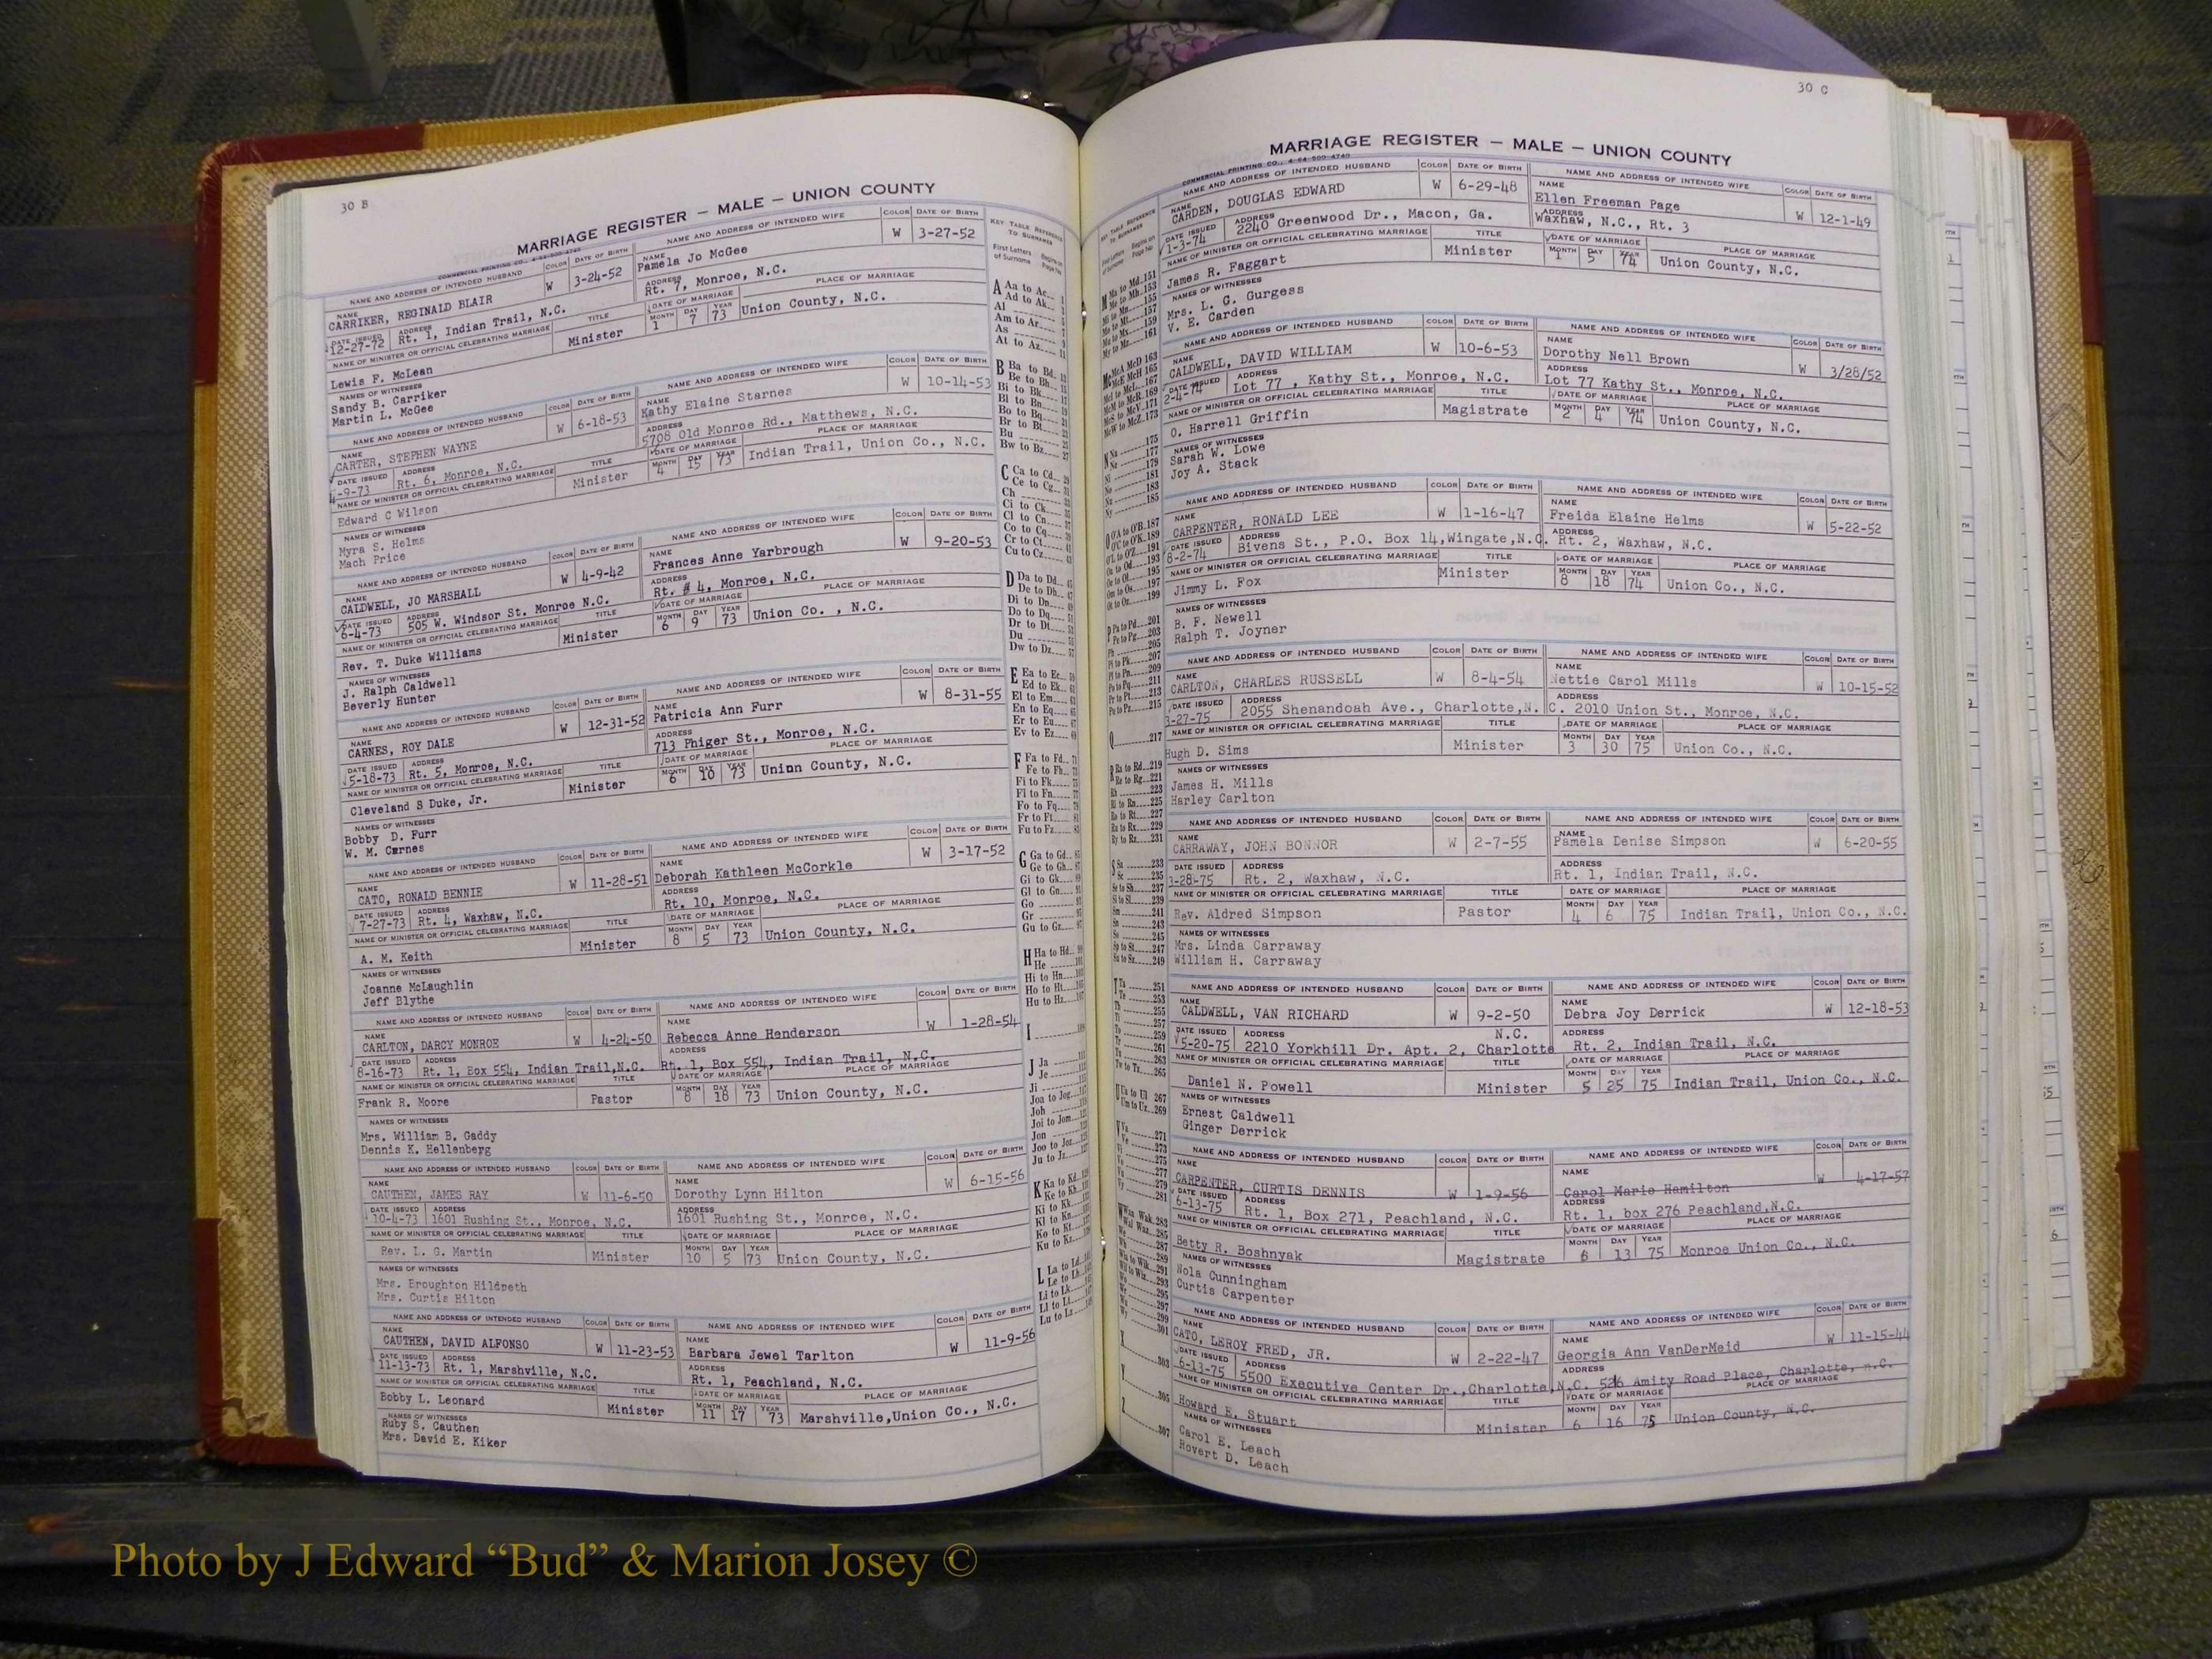 30 B
MARRIAGE REGISTER — MALE — UNION COUNTY
COMMERCIAL PRINTING CO., 4-64-500-4740
NAME AND ADDRESS OF INTENDED HUSBAND COLOR DATE OF BIRTH NAME AND ADDRESS OF INTENDED WIFE COLOR DATE OF BIRTH
NAME CARRIKER, REGINALD BLAIR W 3-24-52 NAME Pamela Jo McGee W 3-27-52
DATE ISSUED 12-27-72 ADDRESS Rt. 1, Indian Trail, N.C. ADDRESS Rt. 7, Monroe, N.C.
NAME OF MINISTER OR OFFICIAL CELEBRATING MARRIAGE TITLE DATE OF MARRIAGE PLACE OF MARRIAGE
Lewis F. McLean Minister MONTH 1 DAY 7 YEAR 73 Union County, N.C.
NAMES OF WITNESSES
Sandy B. Carriker
Martin L. McGee
NAME AND ADDRESS OF INTENDED HUSBAND COLOR DATE OF BIRTH NAME AND ADDRESS OF INTENDED WIFE COLOR DATE OF BIRTH
NAME CARTER, STEPHEN WAYNE W 6-18-53 NAME Kathy Elaine Starnes W 10-14-53
DATE ISSUED 4-9-73 ADDRESS Rt. 6, Monroe, N.C. ADDRESS 5708 Old Monroe Rd., Matthews, N.C.
NAME OF MINISTER OR OFFICIAL CELEBRATING MARRIAGE TITLE DATE OF MARRIAGE PLACE OF MARRIAGE
Edward C Wilson Minister MONTH 4 DAY 15 YEAR 73 Indian Trail, Union Co., N.C.
NAMES OF WITNESSES
Myra S. Helms
Mach Price
NAME AND ADDRESS OF INTENDED HUSBAND COLOR DATE OF BIRTH NAME AND ADDRESS OF INTENDED WIFE COLOR DATE OF BIRTH
NAME CALDWELL, JO MARSHALL W 4-9-42 NAME Frances Anne Yarbrough W 9-20-53
DATE ISSUED 6-4-73 ADDRESS 505 W. Windsor St. Monroe N.C. ADDRESS Rt. # 4, Monroe, N.C.
NAME OF MINISTER OR OFFICIAL CELEBRATING MARRIAGE TITLE DATE OF MARRIAGE PLACE OF MARRIAGE
Rev. T. Duke Williams Minister MONTH 6 DAY 9 YEAR 73 Union Co. , N.C.
NAMES OF WITNESSES
J. Ralph Caldwell
Beverly Hunter
NAME AND ADDRESS OF INTENDED HUSBAND COLOR DATE OF BIRTH NAME AND ADDRESS OF INTENDED WIFE COLOR DATE OF BIRTH
NAME CARNES, ROY DALE W 12-31-52 NAME Patricia Ann Furr W 8-31-55
DATE ISSUED 5-18-73 ADDRESS Rt. 5, Monroe, N.C. ADDRESS 713 Phiger St., Monroe, N.C.
NAME OF MINISTER OR OFFICIAL CELEBRATING MARRIAGE TITLE DATE OF MARRIAGE PLACE OF MARRIAGE
Cleveland S Duke, Jr. Minister MONTH 6 DAY 10 YEAR 73 Union County, N.C.
NAMES OF WITNESSES
Bobby D. Furr
W. M. Carnes
NAME AND ADDRESS OF INTENDED HUSBAND COLOR DATE OF BIRTH NAME AND ADDRESS OF INTENDED WIFE COLOR DATE OF BIRTH
NAME CATO, RONALD BENNIE W 11-28-51 NAME Deborah Kathleen McCorkle W 3-17-52
DATE ISSUED 7-27-73 ADDRESS Rt. 4, Waxhaw, N.C. ADDRESS Rt. 10, Monroe, N.C.
NAME OF MINISTER OR OFFICIAL CELEBRATING MARRIAGE TITLE DATE OF MARRIAGE PLACE OF MARRIAGE
A. M. Keith Minister MONTH 8 DAY 5 YEAR 73 Union County, N.C.
NAMES OF WITNESSES
Joanne McLaughlin
Jeff Blythe
NAME AND ADDRESS OF INTENDED HUSBAND COLOR DATE OF BIRTH NAME AND ADDRESS OF INTENDED WIFE COLOR DATE OF BIRTH
NAME CARLTON, DARCY MONROE W 4-24-50 NAME Rebecca Anne Henderson W 1-28-54
DATE ISSUED 8-16-73 ADDRESS Rt. 1, Box 554, Indian Trail,N.C. ADDRESS Rt. 1, Box 554, Indian Trail, N.C.
NAME OF MINISTER OR OFFICIAL CELEBRATING MARRIAGE TITLE DATE OF MARRIAGE PLACE OF MARRIAGE
Frank R. Moore Pastor MONTH 8 DAY 18 YEAR 73 Union County, N.C.
NAMES OF WITNESSES
Mrs. William B. Gaddy
Dennis K. Hellenberg
NAME AND ADDRESS OF INTENDED HUSBAND COLOR DATE OF BIRTH NAME AND ADDRESS OF INTENDED WIFE COLOR DATE OF BIRTH
NAME CAUTHEN, JAMES RAY W 11-6-50 NAME Dorothy Lynn Hilton W 6-15-56
DATE ISSUED 10-4-73 ADDRESS 1601 Rushing St., Monroe, N.C. ADDRESS 1601 Rushing St., Monroe, N.C.
NAME OF MINISTER OR OFFICIAL CELEBRATING MARRIAGE TITLE DATE OF MARRIAGE PLACE OF MARRIAGE
Rev. L. G. Martin Minister MONTH 10 DAY 5 YEAR 73 Union County, N.C.
NAMES OF WITNESSES
Mrs. Broughton Hildreth
Mrs. Curtis Hilton
NAME AND ADDRESS OF INTENDED HUSBAND COLOR DATE OF BIRTH NAME AND ADDRESS OF INTENDED WIFE COLOR DATE OF BIRTH
NAME CAUTHEN, DAVID ALFONSO W 11-23-53 NAME Barbara Jewel Tarlton W 11-9-56
DATE ISSUED 11-13-73 ADDRESS Rt. 1, Marshville, N.C. ADDRESS Rt. 1, Peachland, N.C.
NAME OF MINISTER OR OFFICIAL CELEBRATING MARRIAGE TITLE DATE OF MARRIAGE PLACE OF MARRIAGE
Bobby L. Leonard Minister MONTH 11 DAY 17 YEAR 73 Marshville,Union Co., N.C.
NAMES OF WITNESSES
Ruby S. Cauthen
Mrs. David E. Kiker
KEY TABLE REFERENCE
TO SURNAMES
First Letters of Surname Begins on Page No
A Aa to Ac
Ad to Ak
Al
Am to Ar
As
At to Az
B Ba to Bd
Be to Bh
Bi to Bk
Bl to Bn
Bo to Bq
Br to Bt
Bu
Bw to Bz
C Ca to Cd
Ce to Cg
Ch
Ci to Ck
Cl to Cn
Co to Cq
Cr to Ct
Cu to Cz
D Da to Dd
De to Dh
Di to Dn
Do to Dq
Dr to Dt
Du
Dw to Dz
E Ea to Ec
Ed to Ek
El to Em
En to Eq
Er to Eu
Ev to Ez
F Fa to Fd
Fe to Fh
Fi to Fk
Fl to Fn
Fo to Fq
Fr to Ft
Fu to Fz
G Ga to Gd
Ge to Gh
Gi to Gk
Gl to Gn
Go
Gr
Gu to Gz
H Ha to Hd
He
Hi to Hn
Ho to Ht
Hu to Hz
I
J Ja
Je
Ji
Joa to Jog
Joh
Joi to Jom
Jon
Joo to Joz
Ju to Jz
K Ka to Kd
Ke to Kh
Ki to Kn
Kl to Kn
Ko to Kt
Ku to Kz
L La to Ld
Le to Lh
Li to Lk
Ll to Lt
Lu to Lz
30 C
MARRIAGE REGISTER — MALE — UNION COUNTY
COMMERCIAL PRINTING CO., 4-64-500-4740
NAME AND ADDRESS OF INTENDED HUSBAND COLOR DATE OF BIRTH NAME AND ADDRESS OF INTENDED WIFE COLOR DATE OF BIRTH
NAME CARDEN, DOUGLAS EDWARD W 6-29-48 NAME Ellen Freeman Page W 12-1-49
DATE ISSUED 1-3-74 ADDRESS 2240 Greenwood Dr., Macon, Ga. ADDRESS Waxhaw, N.C., Rt. 3
NAME OF MINISTER OR OFFICIAL CELEBRATING MARRIAGE TITLE DATE OF MARRIAGE PLACE OF MARRIAGE
James R. Faggart Minister MONTH 1 DAY 5 YEAR 74 Union County, N.C.
NAMES OF WITNESSES
Mrs. L. G. Gurgess
V. E. Carden
NAME AND ADDRESS OF INTENDED HUSBAND COLOR DATE OF BIRTH NAME AND ADDRESS OF INTENDED WIFE COLOR DATE OF BIRTH
NAME CALDWELL, DAVID WILLIAM W 10-6-53 NAME Dorothy Nell Brown W 3/28/52
DATE ISSUED 2-4-74 ADDRESS Lot 77 , Kathy St., Monroe, N.C. ADDRESS Lot 77 Kathy St., Monroe, N.C.
NAME OF MINISTER OR OFFICIAL CELEBRATING MARRIAGE TITLE DATE OF MARRIAGE PLACE OF MARRIAGE
O. Harrell Griffin Magistrate MONTH 2 DAY 4 YEAR 74 Union County, N.C.
NAMES OF WITNESSES
Sarah W. Lowe
Joy A. Stack
NAME AND ADDRESS OF INTENDED HUSBAND COLOR DATE OF BIRTH NAME AND ADDRESS OF INTENDED WIFE COLOR DATE OF BIRTH
NAME CARPENTER, RONALD LEE W 1-16-47 NAME Freida Elaine Helms W 5-22-52
DATE ISSUED 8-2-74 ADDRESS Bivens St., P.O. Box 14,Wingate,N.C. ADDRESS Rt. 2, Waxhaw, N.C.
NAME OF MINISTER OR OFFICIAL CELEBRATING MARRIAGE TITLE DATE OF MARRIAGE PLACE OF MARRIAGE
Jimmy L. Fox Minister MONTH 8 DAY 18 YEAR 74 Union Co., N.C.
NAMES OF WITNESSES
B. F. Newell
Ralph T. Joyner
NAME AND ADDRESS OF INTENDED HUSBAND COLOR DATE OF BIRTH NAME AND ADDRESS OF INTENDED WIFE COLOR DATE OF BIRTH
NAME CARLTON, CHARLES RUSSELL W 8-4-54 NAME Nettie Carol Mills W 10-15-52
DATE ISSUED 3-27-75 ADDRESS 2055 Shenandoah Ave., Charlotte,N.C. ADDRESS 2010 Union St., Monroe, N.C.
NAME OF MINISTER OR OFFICIAL CELEBRATING MARRIAGE TITLE DATE OF MARRIAGE PLACE OF MARRIAGE
Hugh D. Sims Minister MONTH 3 DAY 30 YEAR 75 Union Co., N.C.
NAMES OF WITNESSES
James H. Mills
Harley Carlton
NAME AND ADDRESS OF INTENDED HUSBAND COLOR DATE OF BIRTH NAME AND ADDRESS OF INTENDED WIFE COLOR DATE OF BIRTH
NAME CARRAWAY, JOHN BONNOR W 2-7-55 NAME Pamela Denise Simpson W 6-20-55
DATE ISSUED 3-28-75 ADDRESS Rt. 2, Waxhaw, N.C. ADDRESS Rt. 1, Indian Trail, N.C.
NAME OF MINISTER OR OFFICIAL CELEBRATING MARRIAGE TITLE DATE OF MARRIAGE PLACE OF MARRIAGE
Rev. Aldred Simpson Pastor MONTH 4 DAY 6 YEAR 75 Indian Trail, Union Co., N.C.
NAMES OF WITNESSES
Mrs. Linda Carraway
William H. Carraway
NAME AND ADDRESS OF INTENDED HUSBAND COLOR DATE OF BIRTH NAME AND ADDRESS OF INTENDED WIFE COLOR DATE OF BIRTH
NAME CALDWELL, VAN RICHARD W 9-2-50 NAME Debra Joy Derrick W 12-18-53
DATE ISSUED 5-20-75 ADDRESS 2210 Yorkhill Dr. Apt. 2, Charlotte N.C. ADDRESS Rt. 2, Indian Trail, N.C.
NAME OF MINISTER OR OFFICIAL CELEBRATING MARRIAGE TITLE DATE OF MARRIAGE PLACE OF MARRIAGE
Daniel N. Powell Minister MONTH 5 DAY 25 YEAR 75 Indian Trail, Union Co., N.C.
NAMES OF WITNESSES
Ernest Caldwell
Ginger Derrick
NAME AND ADDRESS OF INTENDED HUSBAND COLOR DATE OF BIRTH NAME AND ADDRESS OF INTENDED WIFE COLOR DATE OF BIRTH
NAME CARPENTER, CURTIS DENNIS W 1-9-56 NAME Carol Marie Hamilton W 4-17-57
DATE ISSUED 6-13-75 ADDRESS Rt. 1, Box 271, Peachland, N.C. ADDRESS Rt. 1, box 276 Peachland,N.C.
NAME OF MINISTER OR OFFICIAL CELEBRATING MARRIAGE TITLE DATE OF MARRIAGE PLACE OF MARRIAGE
Betty R. Boshnyak Magistrate MONTH 6 DAY 13 YEAR 75 Monroe Union Co., N.C.
NAMES OF WITNESSES
Nola Cunningham
Curtis Carpenter
NAME AND ADDRESS OF INTENDED HUSBAND COLOR DATE OF BIRTH NAME AND ADDRESS OF INTENDED WIFE COLOR DATE OF BIRTH
NAME CATO, LEROY FRED, JR. W 2-22-47 NAME Georgia Ann VanDerMeid W 11-15-44
DATE ISSUED 6-13-75 ADDRESS 5500 Executive Center Dr.,Charlotte,N.C. ADDRESS 526 Amity Road Place, Charlotte, n.C.
NAME OF MINISTER OR OFFICIAL CELEBRATING MARRIAGE TITLE DATE OF MARRIAGE PLACE OF MARRIAGE
Howard E. Stuart Minister MONTH 6 DAY 16 YEAR 75 Union County, N.C.
NAMES OF WITNESSES
Carol E. Leach
Rovert D. Leach
Photo by J Edward “Bud” & Marion Josey ©